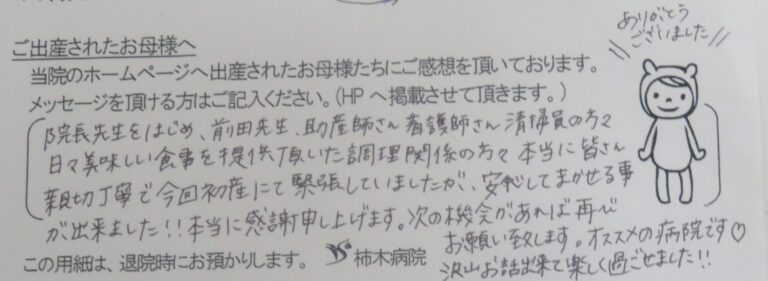 ご出産されたお母様へ
ありがとう
ございました
当院のホームページへ出産されたお母様たちにご感想を頂いております。
メッセージを頂ける方はご記入ください。（HPへ掲載させて頂きます。）
院長先生をはじめ、前田先生、助産師さん看護師さん清掃員の方々
日々美味しい食事を提供頂いた調理関係の方々本当に皆さん
親切丁寧で今回初産にて緊張していましたが、安心してまかせる事
が出来ました!!本当に感謝申し上げます。次の機会があれば再び
お願い致します。オススメの病院です♡
沢山お話出来て楽しく過ごせました!!
この用紙は、退院時にお預かりします。 柿木病院